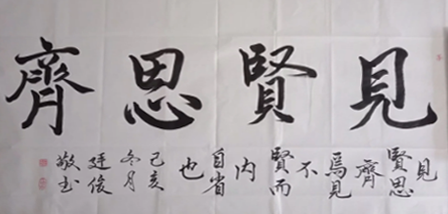 見賢思齊
見
賢思
齊
焉見
不
賢而
內
自省
也
己亥
冬月
廷俊
敬书